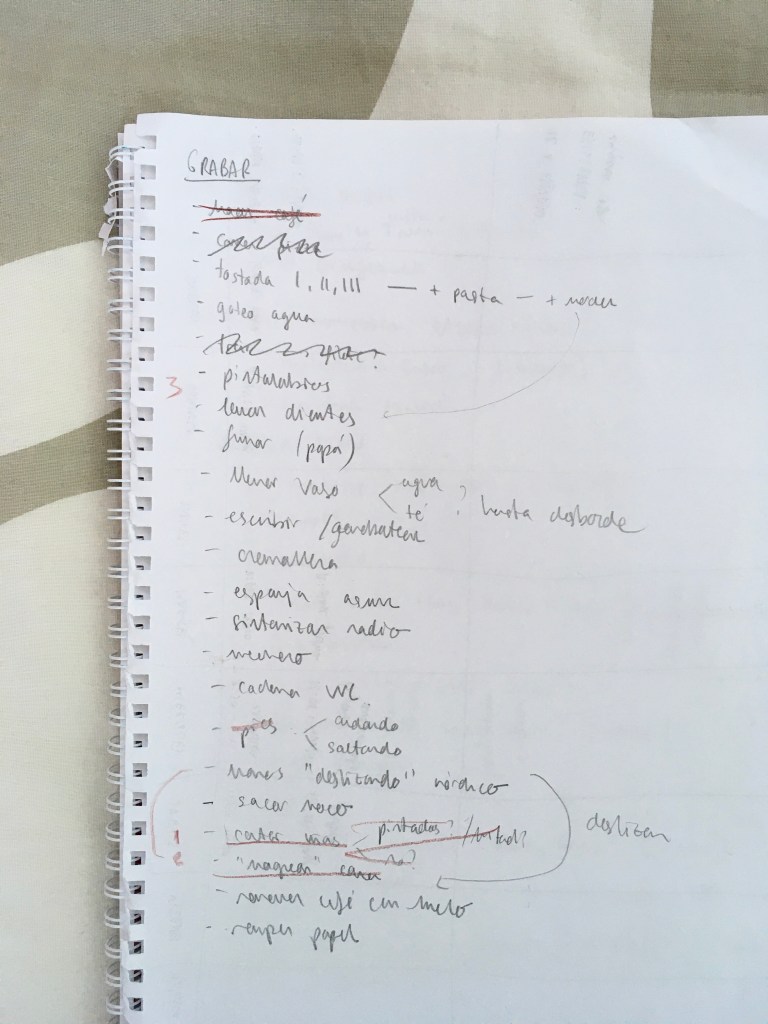 GRABAR
- hacer café
- comer
- tostada I, II, III — + pasta — + morder
- goteo agua
-
3 - pintalabios
- lavar dientes
- fumar (papá)
- llenar vaso < agua té ? hasta desborde
- escribir / garabatear
- cremallera
- esponja
- sintonizar radio
- mechero
- cadena WC
- pies < andando saltando
- manos "deslizando" nórdico
- sacar moco
1 - cortar uñas < pintadas? /
2 no?
- "maquear" cara
deslizar
- remover café con hielo
- romper papel